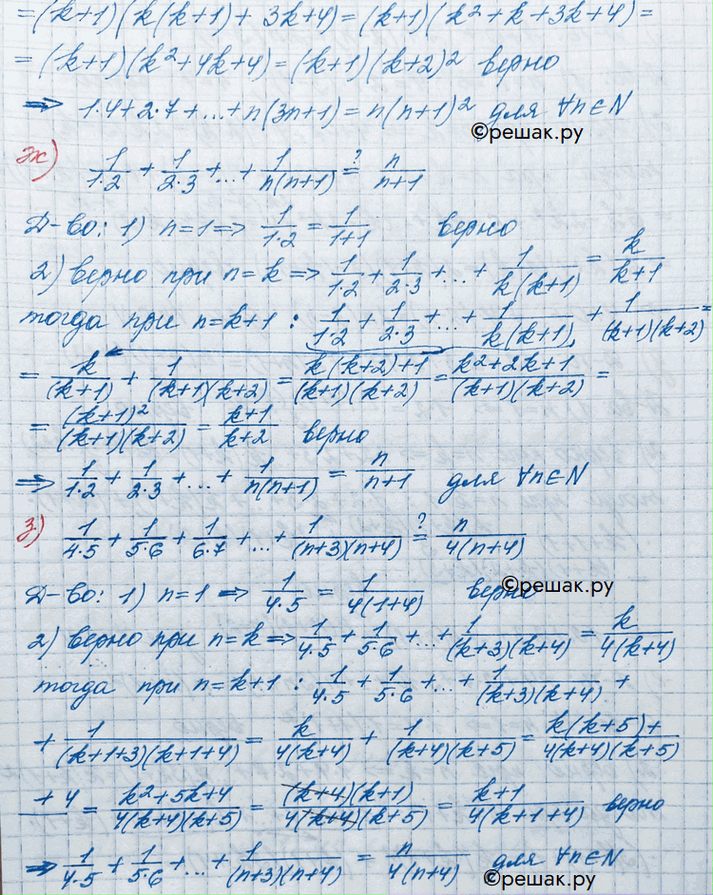 =(k+1)(k(k+1)+3k+4)=(k+1)(k²+k+3k+4)=
=(k+1)(k²+4k+4)=(k+1)(k+2)² верно
⇒ 1·4+2·7+...+n(3n+1)=n(n+1)² для ∀n∈N
©решак.ру
ж) 1/(1·2) + 1/(2·3) +...+ 1/(n(n+1)) ≟ n/(n+1)
Д-во: 1) n=1 ⇒ 1/(1·2) = 1/(1+1) верно
2) верно при n=k ⇒ 1/(1·2) + 1/(2·3) +...+ 1/(k(k+1)) = k/(k+1)
тогда при n=k+1 : 1/(1·2) + 1/(2·3) +...+ 1/(k(k+1)) + 1/((k+1)(k+2)) =
= k/(k+1) + 1/((k+1)(k+2)) = (k(k+2)+1)/((k+1)(k+2)) = (k²+2k+1)/((k+1)(k+2)) =
= (k+1)²/((k+1)(k+2)) = (k+1)/(k+2) верно
⇒ 1/(1·2) + 1/(2·3) +...+ 1/(n(n+1)) = n/(n+1) для ∀n∈N
з) 1/(4·5) + 1/(5·6) + 1/(6·7) +...+ 1/((n+3)(n+4)) ≟ n/(4(n+4))
Д-во: 1) n=1 ⇒ 1/(4·5) = 1/(4(1+4)) верно
©решак.ру
2) верно при n=k ⇒ 1/(4·5) + 1/(5·6) +...+ 1/((k+3)(k+4)) = k/(4(k+4))
тогда при n=k+1 : 1/(4·5) + 1/(5·6) +...+ 1/((k+3)(k+4)) +
+ 1/((k+1+3)(k+1+4)) = k/(4(k+4)) + 1/((k+4)(k+5)) = (k(k+5)+)/(4(k+4)(k+5))
+4 = (k²+5k+4)/(4(k+4)(k+5)) = ((k+4)(k+1))/(4(k+4)(k+5)) = (k+1)/(4(k+1+4)) верно
⇒ 1/(4·5) + 1/(5·6) +...+ 1/((n+3)(n+4)) = n/(4(n+4)) для ∀n∈N
©решак.ру